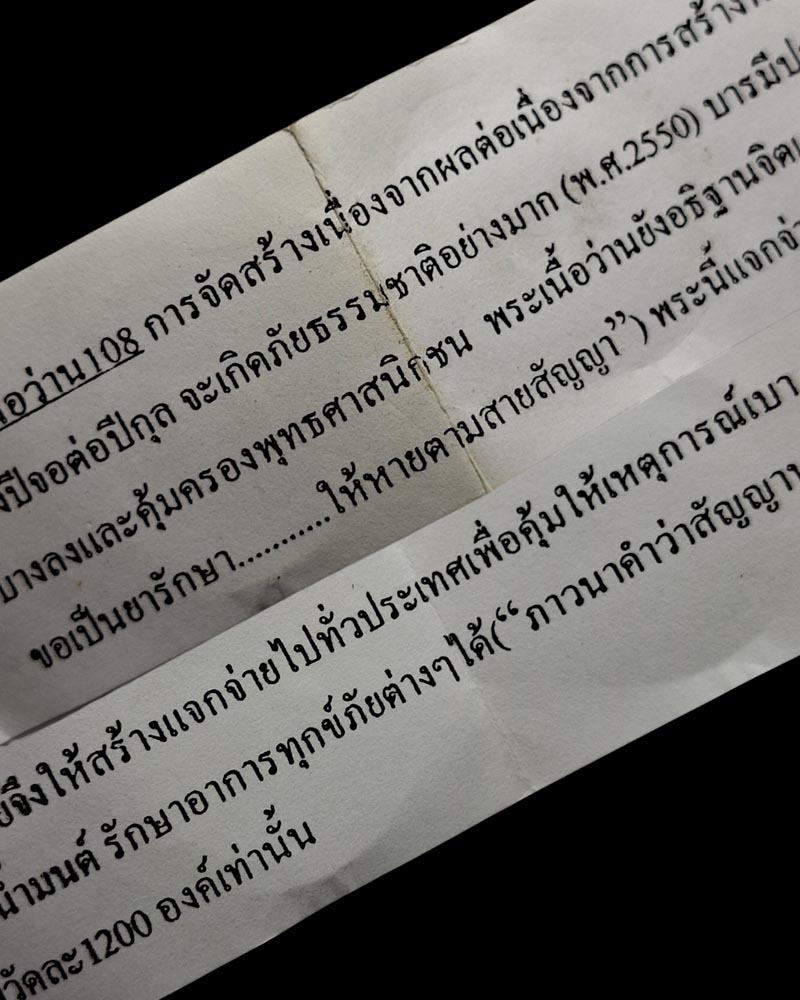 เนื้อว่าน108 การจัดสร้างเนื่องจากผลต่อเนื่องจากการสร้าง
ปีจอต่อปีกุล จะเกิดภัยธรรมชาติอย่างมาก (พ.ศ.2550) บารมี
บางลงและคุ้มครองพุทธศาสนิกชน พระเนื้อว่านยังอธิฐานจิต
ขอเป็นยารักษา...........ให้หายตามสายสัญญา”) พระนี้แจก
จึงให้สร้างแจกจ่ายไปทั่วประเทศเพื่อคุ้มให้เหตุการณ์เบา
น้ำมนต์ รักษาอาการทุกข์ภัยต่างๆได้(“ภาวนาคำว่าสัญญา
วัดละ1200 องค์เท่านั้น